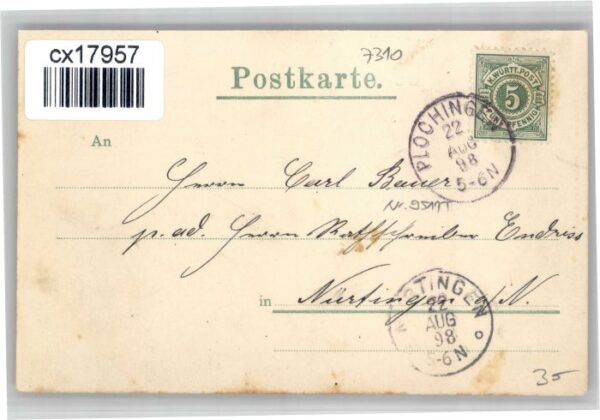 cx17957
7310
Postkarte.
K. WÜRTT. POST
5
FÜNF PFENNIG
PLOCHINGEN
22
AUG
98
5-6N
An
Herrn Carl Bauer
p. ad. Herrn Ratsschreiber Endriss
in Nürtingen a/N.
NÜRTINGEN
22
AUG
98
5-6N
35